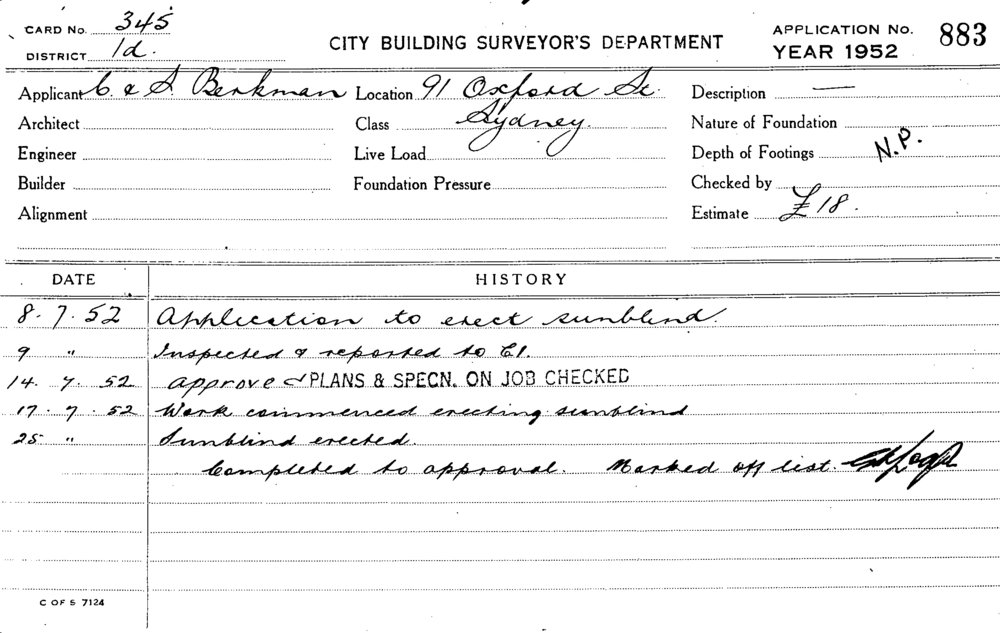 CARD No. 345
DISTRICT 1d.
CITY BUILDING SURVEYOR'S DEPARTMENT
APPLICATION No. 883
YEAR 1952
Applicant C. & S. Berkman Location 91 Oxford St. Description —
Architect Class Sydney. Nature of Foundation
Engineer Live Load Depth of Footings N.P.
Builder Foundation Pressure Checked by
Alignment Estimate £18.
DATE HISTORY
8. 7. 52 Application to erect sunblind.
9 " Inspected & reported to C.I.
14. 7. 52 Approved PLANS & SPECN. ON JOB CHECKED
17. 7. 52 Work commenced erecting sunblind
25 " Sunblind erected.
Completed to approval. Marked off list.
C OF S 7124